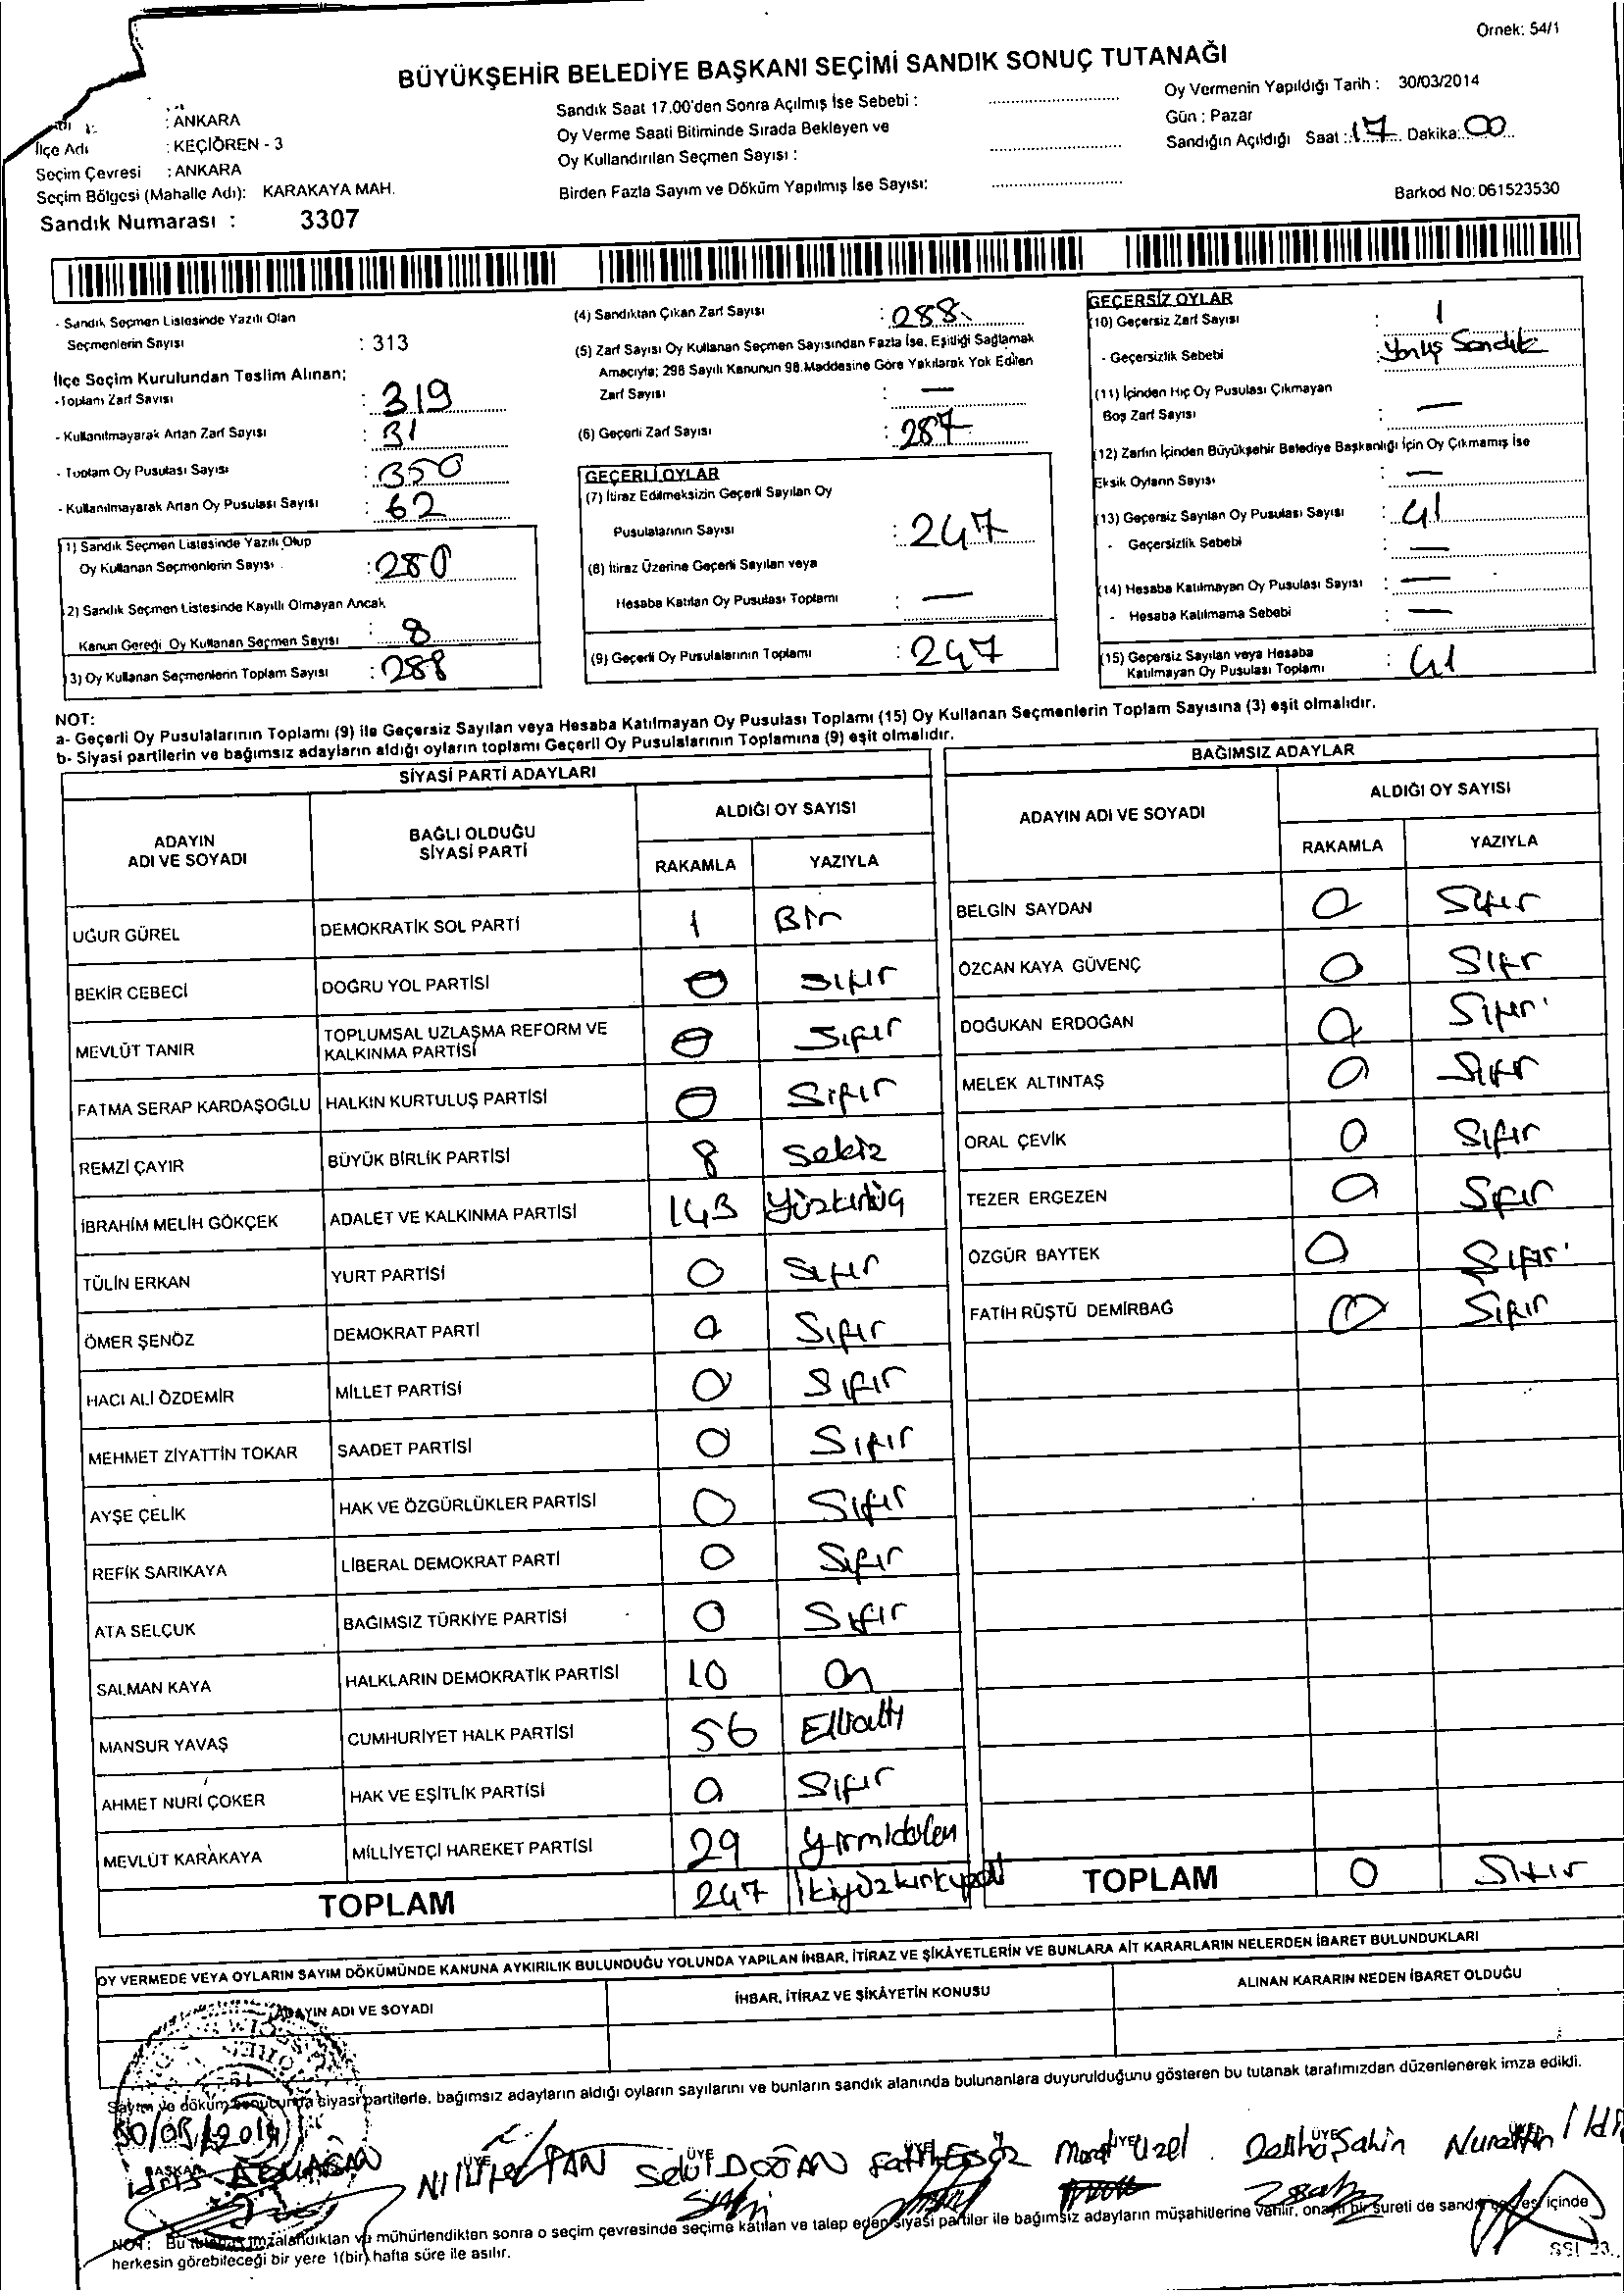 Ornek: 54/1
BÜYÜKŞEHİR BELEDİYE BAŞKANI SEÇİMİ SANDIK SONUÇ TUTANAĞI
: ANKARA
İlçe Adı : KEÇİÖREN - 3
Seçim Çevresi : ANKARA
Seçim Bölgesi (Mahalle Adı): KARAKAYA MAH.
Sandık Numarası : 3307
Sandık Saat 17.00'den Sonra Açılmış İse Sebebi :
Oy Verme Saati Bitiminde Sırada Bekleyen ve
Oy Kullandırılan Seçmen Sayısı :
Birden Fazla Sayım ve Döküm Yapılmış İse Sayısı:
Oy Vermenin Yapıldığı Tarih : 30/03/2014
Gün : Pazar
Sandığın Açıldığı Saat : 17 Dakika: 00
Barkod No: 061523530
- Sandık Seçmen Listesinde Yazılı Olan
Seçmenlerin Sayısı : 313
İlçe Seçim Kurulundan Teslim Alınan;
- Toplam Zarf Sayısı : 319
- Kullanılmayarak Artan Zarf Sayısı : 31
- Toplam Oy Pusulası Sayısı : 350
- Kullanılmayarak Artan Oy Pusulası Sayısı : 62
(1) Sandık Seçmen Listesinde Yazılı Olup
Oy Kullanan Seçmenlerin Sayısı : 280
(2) Sandık Seçmen Listesinde Kayıtlı Olmayan Ancak
Kanun Gereği Oy Kullanan Seçmen Sayısı : 8
(3) Oy Kullanan Seçmenlerin Toplam Sayısı : 288
(4) Sandıktan Çıkan Zarf Sayısı : 288
(5) Zarf Sayısı Oy Kullanan Seçmen Sayısından Fazla İse, Eşitliği Sağlamak
Amacıyla; 298 Sayılı Kanunun 98.Maddesine Göre Yakılarak Yok Edilen
Zarf Sayısı : —
(6) Geçerli Zarf Sayısı : 287
GEÇERLİ OYLAR
(7) İtiraz Edilmeksizin Geçerli Sayılan Oy
Pusulalarının Sayısı : 247
(8) İtiraz Üzerine Geçerli Sayılan veya
Hesaba Katılan Oy Pusulası Toplamı : —
(9) Geçerli Oy Pusulalarının Toplamı : 247
GEÇERSİZ OYLAR
(10) Geçersiz Zarf Sayısı : 1
- Geçersizlik Sebebi : Yanlış Sandık
(11) İçinden Hiç Oy Pusulası Çıkmayan
Boş Zarf Sayısı : —
(12) Zarfın İçinden Büyükşehir Belediye Başkanlığı İçin Oy Çıkmamış İse
Eksik Oyların Sayısı : —
(13) Geçersiz Sayılan Oy Pusulası Sayısı : 41
- Geçersizlik Sebebi : —
(14) Hesaba Katılmayan Oy Pusulası Sayısı : —
- Hesaba Katılmama Sebebi : —
(15) Geçersiz Sayılan veya Hesaba
Katılmayan Oy Pusulası Toplamı : 41
NOT:
a- Geçerli Oy Pusulalarının Toplamı (9) ile Geçersiz Sayılan veya Hesaba Katılmayan Oy Pusulası Toplamı (15) Oy Kullanan Seçmenlerin Toplam Sayısına (3) eşit olmalıdır.
b- Siyasi partilerin ve bağımsız adayların aldığı oyların toplamı Geçerli Oy Pusulalarının Toplamına (9) eşit olmalıdır.
SİYASİ PARTİ ADAYLARI
ADAYIN ADI VE SOYADI BAĞLI OLDUĞU SİYASİ PARTİ ALDIĞI OY SAYISI
RAKAMLA YAZIYLA
UĞUR GÜREL DEMOKRATİK SOL PARTİ 1 Bir
BEKİR CEBECİ DOĞRU YOL PARTİSİ 0 Sıfır
MEVLÜT TANIR TOPLUMSAL UZLAŞMA REFORM VE KALKINMA PARTİSİ 0 Sıfır
FATMA SERAP KARDAŞOĞLU HALKIN KURTULUŞ PARTİSİ 0 Sıfır
REMZİ ÇAYIR BÜYÜK BİRLİK PARTİSİ 8 Sekiz
İBRAHİM MELİH GÖKÇEK ADALET VE KALKINMA PARTİSİ 143 Yüzkırküç
TÜLİN ERKAN YURT PARTİSİ 0 Sıfır
ÖMER ŞENÖZ DEMOKRAT PARTİ 0 Sıfır
HACI ALİ ÖZDEMİR MİLLET PARTİSİ 0 Sıfır
MEHMET ZİYATTİN TOKAR SAADET PARTİSİ 0 Sıfır
AYŞE ÇELİK HAK VE ÖZGÜRLÜKLER PARTİSİ 0 Sıfır
REFİK SARIKAYA LİBERAL DEMOKRAT PARTİ 0 Sıfır
ATA SELÇUK BAĞIMSIZ TÜRKİYE PARTİSİ 0 Sıfır
SALMAN KAYA HALKLARIN DEMOKRATİK PARTİSİ 10 On
MANSUR YAVAŞ CUMHURİYET HALK PARTİSİ 56 Ellialtı
AHMET NURİ ÇOKER HAK VE EŞİTLİK PARTİSİ 0 Sıfır
MEVLÜT KARAKAYA MİLLİYETÇİ HAREKET PARTİSİ 29 Yirmidokuz
TOPLAM 247 İkiyüzkırkyedi
BAĞIMSIZ ADAYLAR
ADAYIN ADI VE SOYADI ALDIĞI OY SAYISI
RAKAMLA YAZIYLA
BELGİN SAYDAN 0 Sıfır
ÖZCAN KAYA GÜVENÇ 0 Sıfır
DOĞUKAN ERDOĞAN 0 Sıfır
MELEK ALTINTAŞ 0 Sıfır
ORAL ÇEVİK 0 Sıfır
TEZER ERGEZEN 0 Sıfır
ÖZGÜR BAYTEK 0 Sıfır
FATİH RÜŞTÜ DEMİRBAĞ 0 Sıfır
TOPLAM 0 Sıfır
OY VERMEDE VEYA OYLARIN SAYIM DÖKÜMÜNDE KANUNA AYKIRILIK BULUNDUĞU YOLUNDA YAPILAN İHBAR, İTİRAZ VE ŞİKÂYETLERİN VE BUNLARA AİT KARARLARIN NELERDEN İBARET BULUNDUKLARI
ADAYIN ADI VE SOYADI İHBAR, İTİRAZ VE ŞİKÂYETİN KONUSU ALINAN KARARIN NEDEN İBARET OLDUĞU
Sayım ve döküm sonucunda siyasi partilerle, bağımsız adayların aldığı oyların sayılarını ve bunların sandık alanında bulunanlara duyurulduğunu gösteren bu tutanak tarafımızdan düzenlenerek imza edildi.
30/03/2014
BAŞKAN ÜYE ÜYE ÜYE ÜYE
İdris DOĞAN Fatih Murat Uzel Şahin Nurettin
NOT: Bu tutanak imzalandıktan ve mühürlendikten sonra o seçim çevresinde seçime katılan ve talep eden siyasi partiler ile bağımsız adayların müşahitlerine verilir, onaylı bir sureti de sandık çevresi içinde
herkesin görebileceği bir yere 1(bir) hafta süre ile asılır.